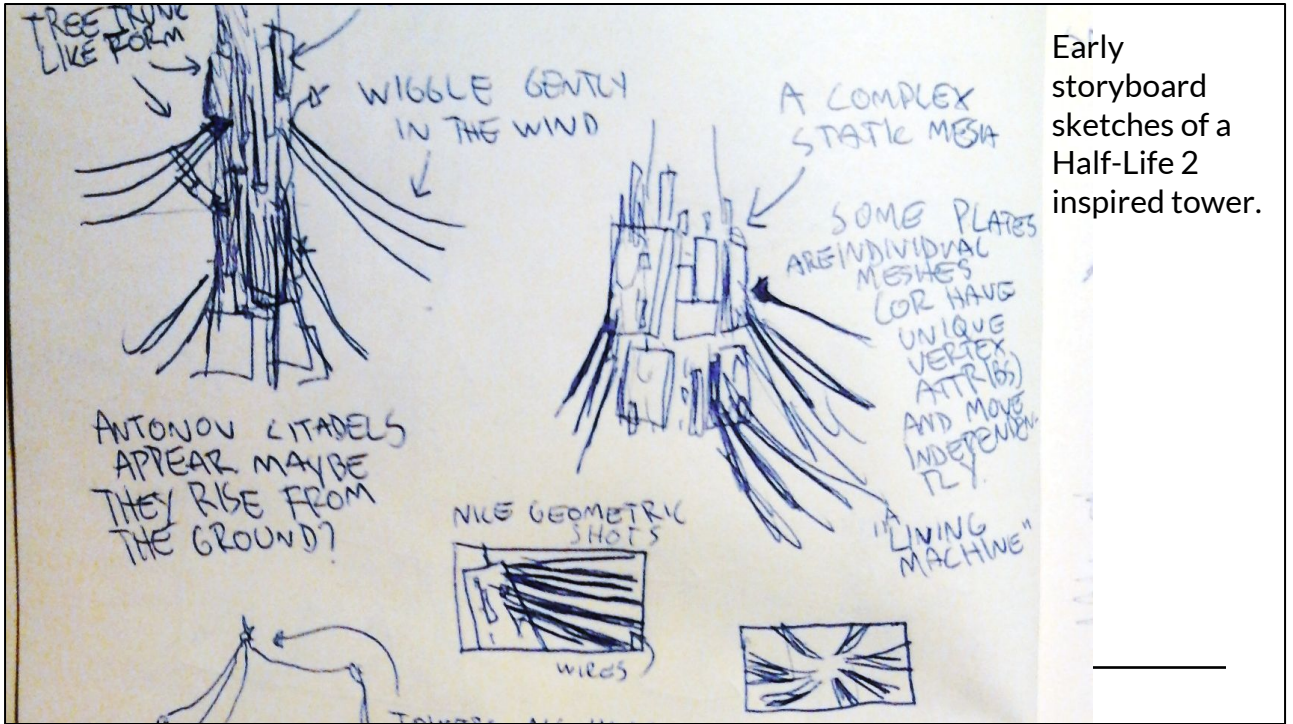 TREE TRUNK
LIKE FORM
WIGGLE GENTLY
IN THE WIND
A COMPLEX
STATIC MESH
SOME PLATES
ARE INDIVIDUAL
MESHES
(OR HAVE
UNIQUE
VERTEX
ATTRIBS)
AND MOVE
INDEPENDEN-
TLY.
ANTONOV CITADELS
APPEAR MAYBE
THEY RISE FROM
THE GROUND?
NICE GEOMETRIC
SHOTS
WIRES
A
"LIVING
MACHINE"
Early
storyboard
sketches of a
Half-Life 2
inspired tower.